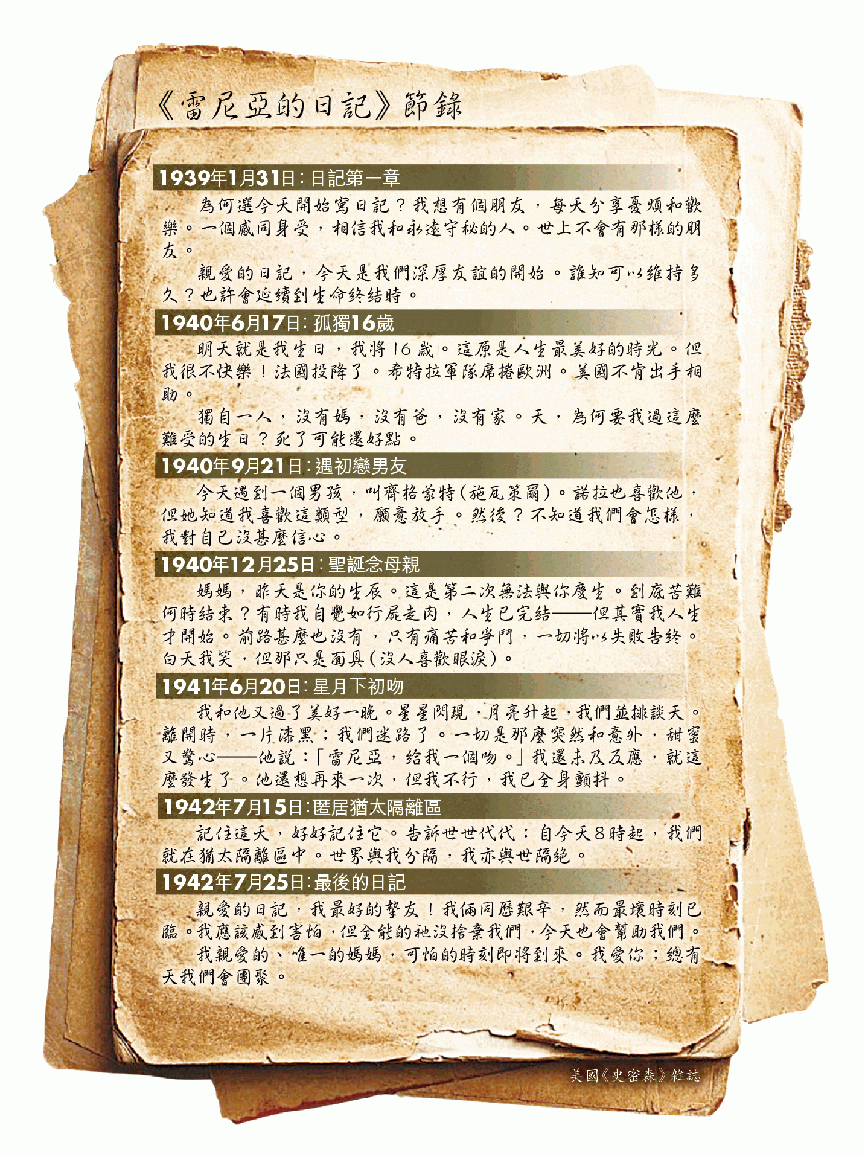 《雷尼亞的日記》節錄
1939年1月31日：日記第一章
為何選今天開始寫日記？我想有個朋友，每天分享憂煩和歡
樂。一個感同身受，相信我和永遠守秘的人。世上不會有那樣的朋
友。
親愛的日記，今天是我們深厚友誼的開始。誰知可以維持多
久？也許會延續到生命終結時。
1940年6月17日：孤獨16歲
明天就是我生日，我將16歲。這原是人生最美好的時光。但
我很不快樂！法國投降了。希特拉軍隊席捲歐洲。美國不肯出手相
助。
獨自一人，沒有媽，沒有爸，沒有家。天，為何要我過這麼
難受的生日？死了可能還好點。
1940年9月21日：遇初戀男友
今天遇到一個男孩，叫齊格蒙特(施瓦策爾)。諾拉也喜歡他，
但她知道我喜歡這類型，願意放手。然後？不知道我們會怎樣，
我對自己沒甚麼信心。
1940年12月25日：聖誕念母親
媽媽，昨天是你的生辰。這是第二次無法與你慶生。到底苦難
何時結束？有時我自覺如行屍走肉，人生已完結──但其實我人生
才開始。前路甚麼也沒有，只有痛苦和爭鬥，一切將以失敗告終。
白天我笑，但那只是面具(沒人喜歡眼淚)。
1941年6月20日：星月下初吻
我和他又過了美好一晚。星星閃現，月亮升起，我們並排談天。
離開時，一片漆黑；我們迷路了。一切是那麼突然和意外，甜蜜
又驚心──他說：「雷尼亞，給我一個吻。」我還未及反應，就這
麼發生了。他還想再來一次，但我不行，我已全身顫抖。
1942年7月15日：匿居猶太隔離區
記住這天，好好記住它。告訴世世代代；自今天8時起，我們
就在猶太隔離區中。世界與我分隔，我亦與世隔絕。
1942年7月25日：最後的日記
親愛的日記，我最好的摯友！我倆同歷艱辛，然而最壞時刻已
臨。我應該感到害怕，但全能的祂沒捨棄我們，今天也會幫助我們。
我親愛的、唯一的媽媽，可怕的時刻即將到來。我愛你；總有
天我們會團聚。
美國《史密森》雜誌